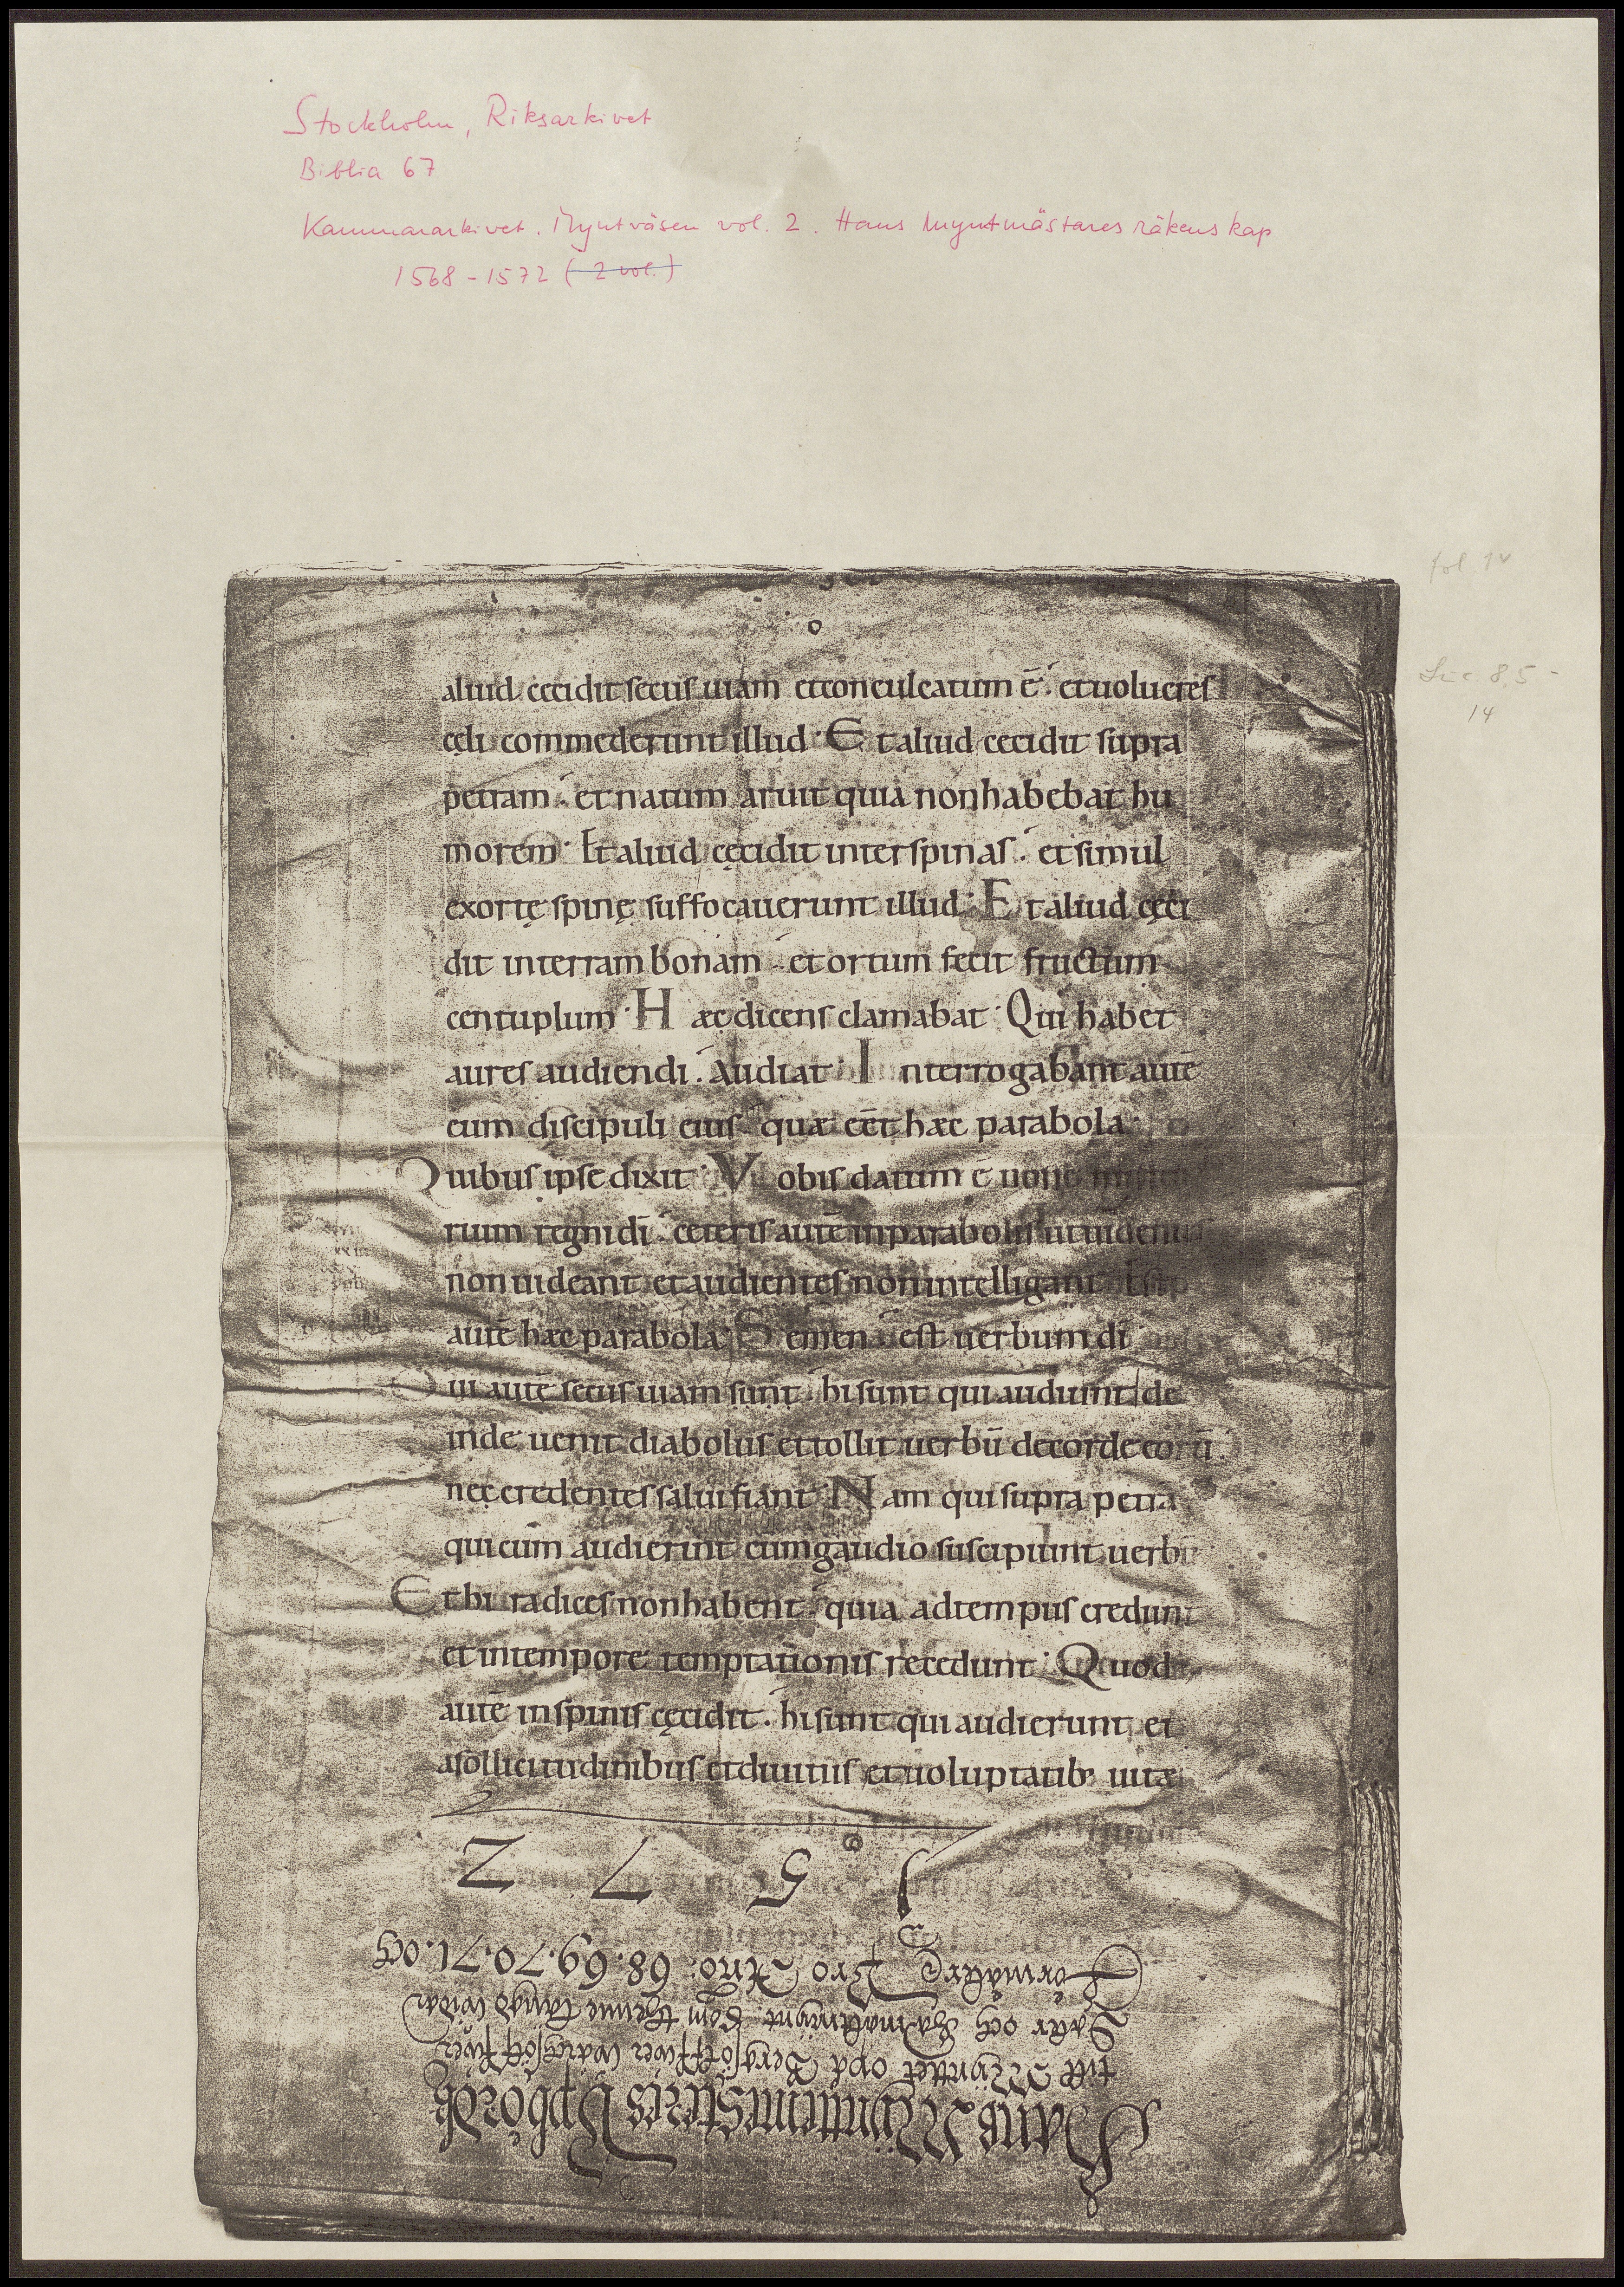 Stockholm, Riksarkivet
Biblia 67
Kammararkivet. Myntväsen vol. 2. Hans Myntmästares räkenskap
1568-1572 (2 vol.)
fol. 1v
Luc. 8,5-
14
aliud cecidit secus uiam et conculcatum ē. et uolucres
cęli commederunt illud. Et aliud cecidit supra
petram. et natum aruit quia non habebat hu
morem. Et aliud cęcidit inter spinas. et simul
exortę spinę suffocauerunt illud. Et aliud cęci
dit in terram bonam. et ortum fecit fructum
centuplum. Hæc dicens clamabat. Qui habet
aures audiendi. Audiat. Interrogabant autē
eum discipuli eius quæ eēt hæc parabola.
Quibus ipse dixit. Vobis datum ē
rium regni dī. ceteris autē in parabolis ut uidentes
non uideant et audientes non intelligant. Est
autē hæc parabola. Semen est uerbum dī
Qui autē secus uiam sunt. hi sunt qui audiunt de
inde uenit diabolus et tollit uerbū de corde eorū.
nec credentes salui fiant. Nam qui supra petrā
qui cum audierint cum gaudio suscipiunt uerbū
Et hi radices non habent. quia ad tempus credunt
et in tempore temptationis recedunt. Quod
autē in spinis cęcidit. hi sunt qui audierunt et
a sollicitudinibus et diuitiis et uoluptatib; uitæ
Hans Mÿnttemesteres Vpbördh
till Mynttet opå
och
Förmåkre Pro Ano: 68.69.70.71. och
1572